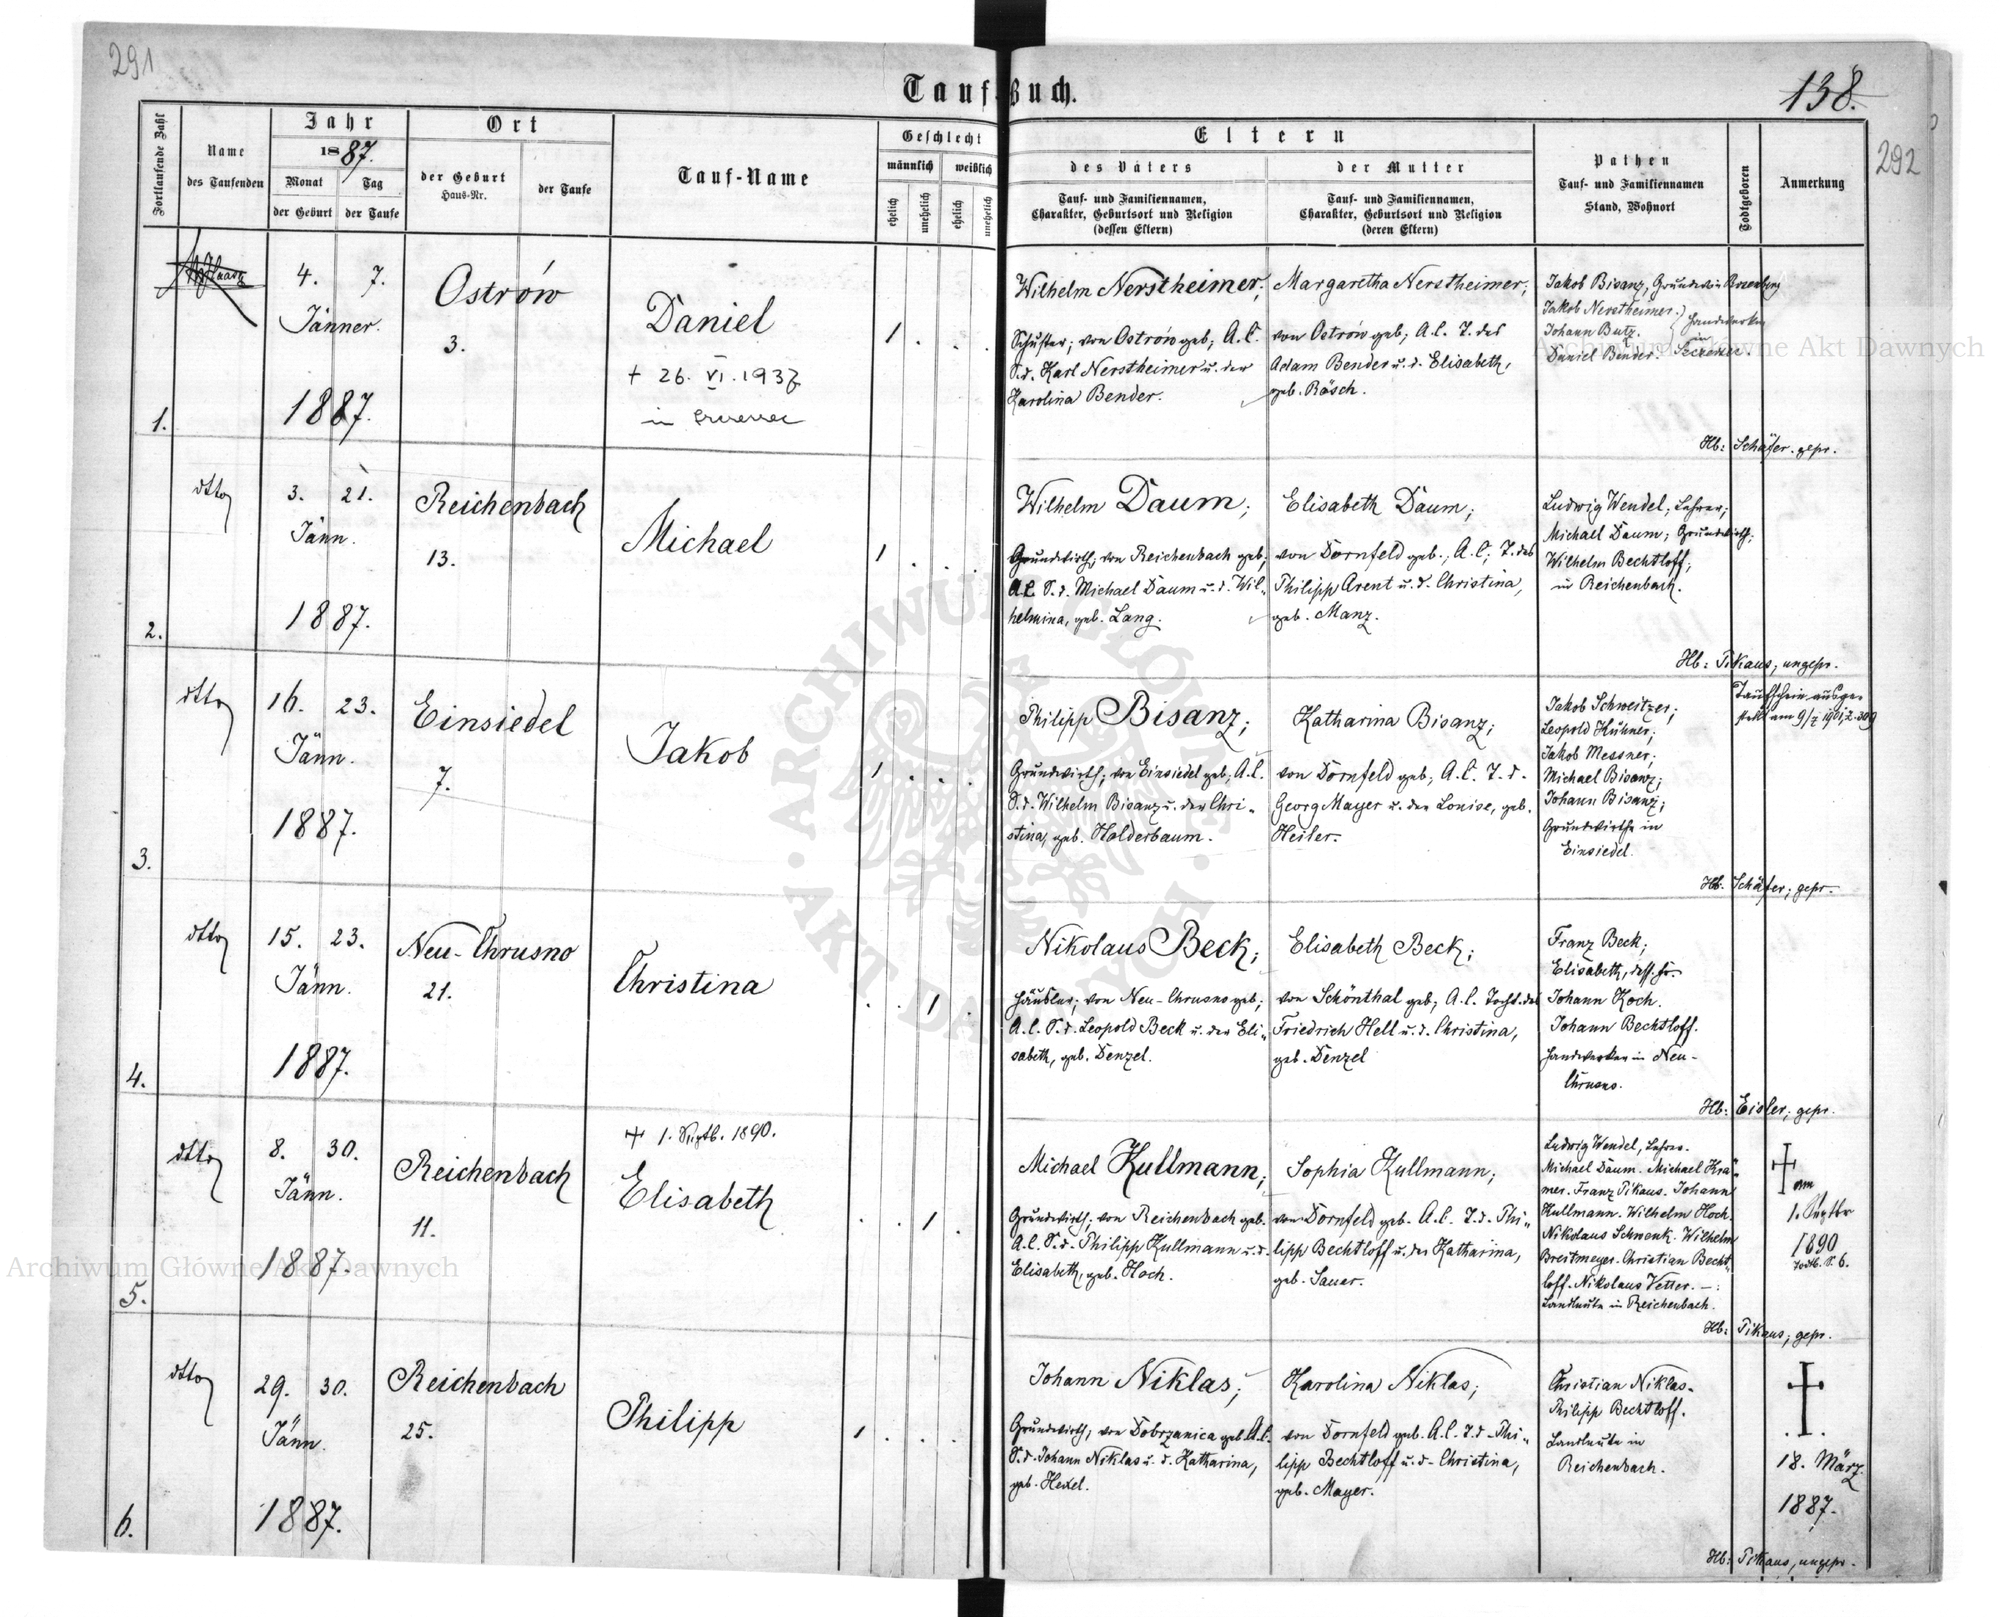 291
Tauf-Buch.
138.
292
Fortlaufende Zahl
Name
des Taufenden
Jahr
1887.
Monat
Tag
der Geburt
der Taufe
Ort
der Geburt
Haus-Nr.
der Taufe
Tauf-Name
Geschlecht
männlich
weiblich
ehelich
unehelich
ehelich
unehelich
Eltern
des Vaters
Tauf- und Familiennamen,
Charakter, Geburtsort und Religion
(dessen Eltern)
der Mutter
Tauf- und Familiennamen,
Charakter, Geburtsort und Religion
(deren Eltern)
Pathen
Tauf- und Familiennamen
Stand, Wohnort
Todtgeboren
Anmerkung
1.
4. 7.
Jänner.
1887.
Ostrów
3.
Daniel
+ 26. VI. 1937
in
1
Wilhelm Nerstheimer;
Schuster; von Ostrów geb; A.C.
S.d. Karl Nerstheimer u. der
Karolina Bender.
Margaretha Nerstheimer;
von Ostrów geb; A.C. T. des
Adam Bender u. d. Elisabeth,
geb. Räsch.
Jakob Bisanz, Grundw. in Rosenberg
Jakob Nerstheimer.
Johann Butz.
Daniel Bender.
Handwerker
in
Szczerzec.
Hb: Schäfer. gepr.
2.
dtto
3. 21.
Jänn.
1887.
Reichenbach
13.
Michael
1
Wilhelm Daum;
Grundwirth; von Reichenbach geb;
A.C. S.d. Michael Daum u. d. Wil-
helmina, geb. Lang.
Elisabeth Daum;
von Dornfeld geb., A.C; T. des
Philipp Arent u. d. Christina,
geb. Manz.
Ludwig Wendel, Lehrer;
Michael Daum; Grundwirth;
Wilhelm Bechtloff;
in Reichenbach.
Hb: Pikaus, ungepr.
3.
dtto
16. 23.
Jänn.
1887.
Einsiedel
7.
Jakob
1
Philipp Bisanz;
Grundwirth; von Einsiedel geb; A.C.
S.d. Wilhelm Bisanz u. der Chri-
stina, geb. Halderbaum.
Katharina Bisanz;
von Dornfeld geb; A.C. T. d.
Georg Mayer u. der Louise, geb.
Heiler.
Jakob Schweitzer;
Leopold Kühner;
Jakob Messner;
Michael Bisanz;
Johann Bisanz;
Grundwirthe in
Einsiedel.
Taufschein ausge-
stellt am
Hb. Schäfer; gepr.
4.
dtto
15. 23.
Jänn.
1887.
Neu-Chrusno
21.
Christina
1
Nikolaus Beck;
Häusler; von Neu-Chrusno geb;
A.C. S.d. Leopold Beck u. der Eli-
sabeth, geb. Denzel.
Elisabeth Beck;
von Schönthal geb; A.C. Tocht. des
Friedrich Hell u. d. Christina,
geb. Denzel
Franz Beck;
Elisabeth, dess. Fr.
Johann Koch.
Johann Bechtloff.
Handwerker in Neu-
Chrusno.
Hb: Eisler; gepr.
5.
dtto
8. 30.
Jänn.
1887.
Reichenbach
11.
+ 1. Septb. 1890.
Elisabeth
1
Michael Kullmann;
Grundwirth; von Reichenbach geb.
A.C. S.d. Philipp Kullmann u. d.
Elisabeth, geb. Hoch.
Sophia Kullmann;
von Dornfeld geb. A.C. T. d. Phi-
lipp Bechtloff u. der Katharina,
geb. Sauer.
Ludwig Wendel, Lehrer.
Michael Daum. Michael Krä-
mer. Franz Pikaus. Johann
Kullmann. Wilhelm Hoch.
Nikolaus Schwenk. Wilhelm
Breitmeyer. Christian Becht-
loff. Nikolaus Vetter.
Landleute in Reichenbach.
am
1. Septbr
1890
Todtb. S. 6.
Hb: Pikaus; gepr.
6.
dtto
29. 30.
Jänn.
1887.
Reichenbach
25.
Philipp
1
Johann Niklas;
Grundwirth; von Dobrzanica geb. A.C.
S.d. Johann Niklas u. d. Katharina,
geb. Hexel.
Karolina Niklas;
von Dornfeld geb. A.C. T. d. Phi-
lipp Bechtloff u. d. Christina,
geb. Mayer.
Christian Niklas.
Philipp Bechtloff.
Landleute in
Reichenbach.
18. März
1887.
Hb: Pikaus, ungepr.
Archiwum Główne Akt Dawnych
Archiwum Główne Akt Dawnych
ARCHIWUM GŁÓWNE
AKT DAWNYCH